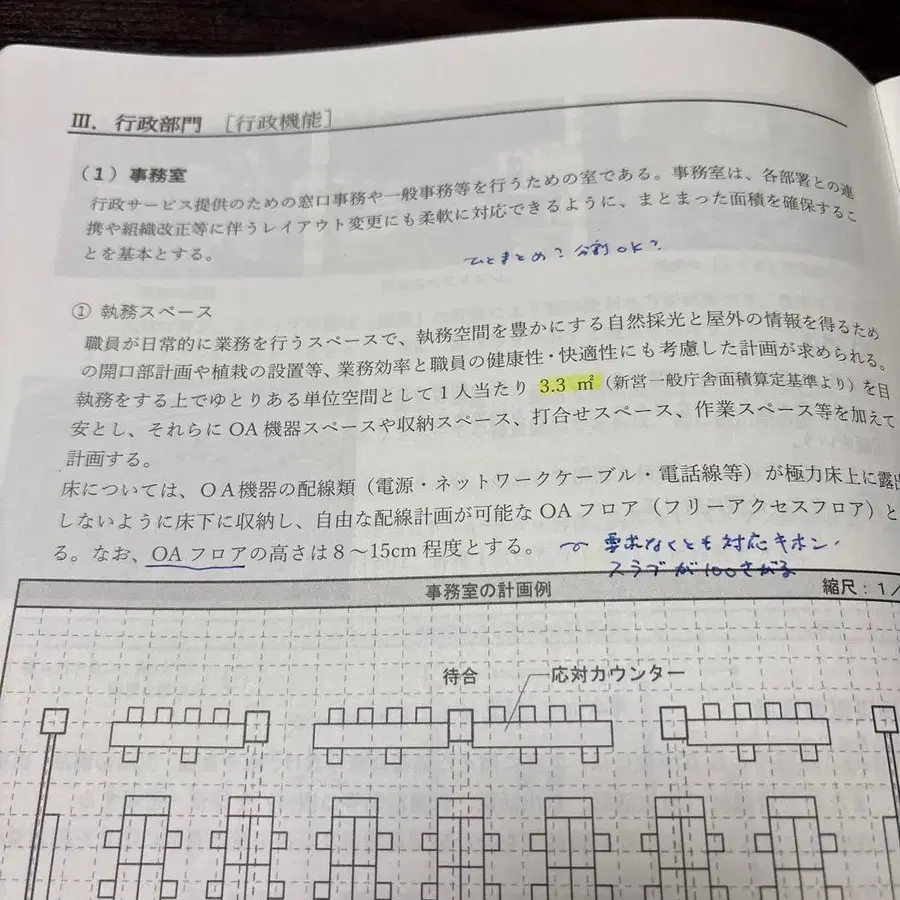 Ⅲ. 行政部門 [行政機能]
(1) 事務室
行政サービス提供のための窓口事務や一般事務等を行うための室である。事務室は、各部署との連
携や組織改正等に伴うレイアウト変更にも柔軟に対応できるように、まとまった面積を確保するこ
とを基本とする。
ひとまとめ? 分割OK?
① 執務スペース
職員が日常的に業務を行うスペースで、執務空間を豊かにする自然採光と屋外の情報を得るため
の開口部計画や植栽の設置等、業務効率と職員の健康性・快適性にも考慮した計画が求められる。
執務をする上でゆとりある単位空間として1人当たり 3.3 ㎡(新営一般庁舎面積算定基準より)を目
安とし、それらに OA 機器スペースや収納スペース、打合せスペース、作業スペース等を加えて
計画する。
床については、OA機器の配線類(電源・ネットワークケーブル・電話線等)が極力床上に露出
しないように床下に収納し、自由な配線計画が可能な OA フロア(フリーアクセスフロア)と
る。なお、OA フロアの高さは8~15cm 程度とする。
要求なくとも対応キホン.
スラブが100さがる
事務室の計画例
縮尺:1/
待合
応対カウンター